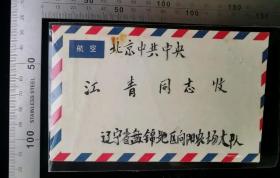 航空
北京中共中央
江青同志收
辽宁省盘锦地区向阳农场大队
STAINLESS STEEL
50
100